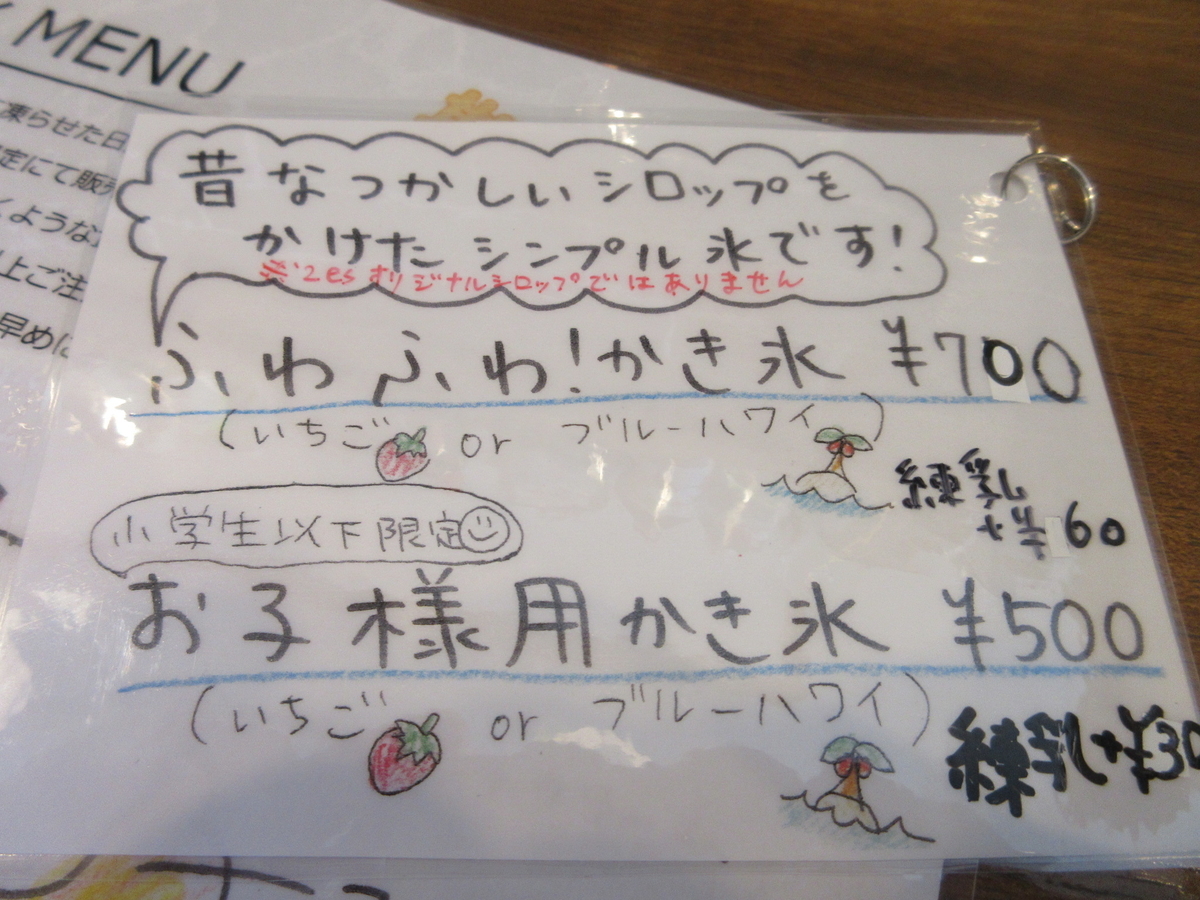 MENU
凍らせた日
定にて販売
くような
上ご注
早めに
昔なつかしいシロップを
かけたシンプル氷です!
※'2esオリジナルシロップではありません
ふわふわ!かき氷 ¥700
(いちご or ブルーハワイ)
練乳
+¥60
小学生以下限定
お子様用かき氷 ¥500
(いちご or ブルーハワイ)
練乳+¥30